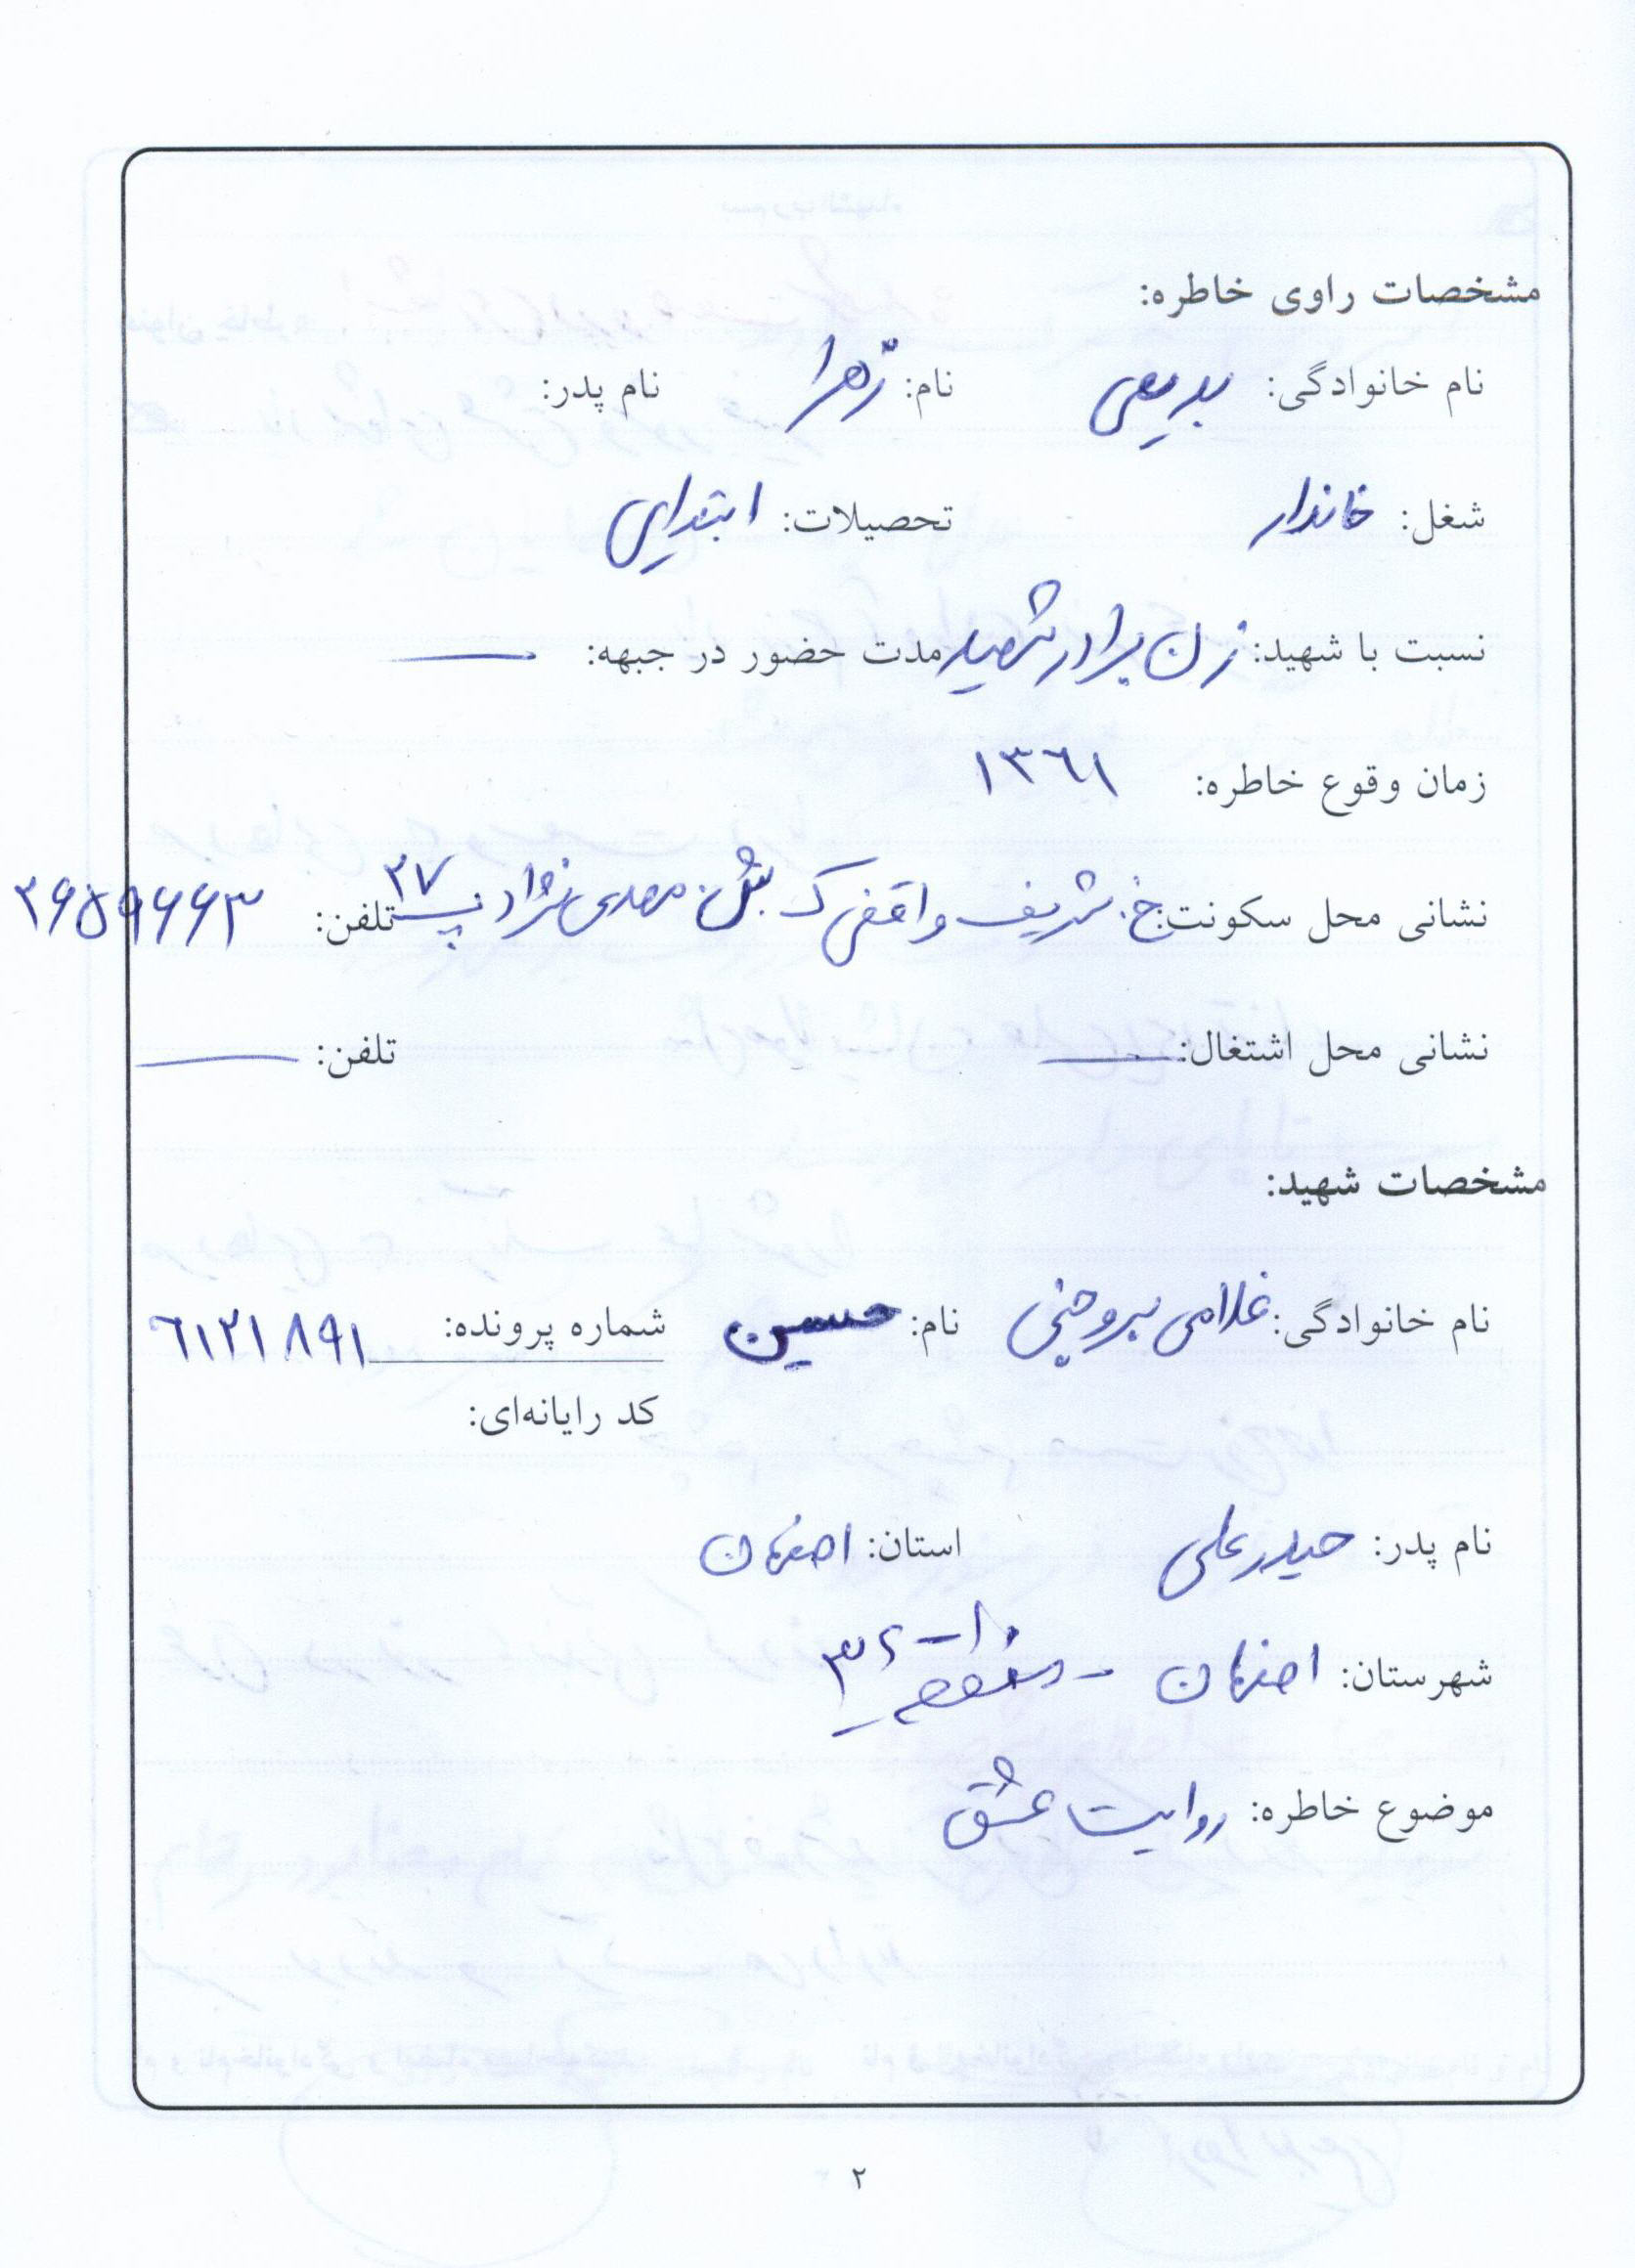 مشخصات راوی خاطره:
نام خانوادگی: بدیعی نام: زهرا نام پدر:
شغل: خاندار تحصیلات: ابتدایی
نسبت با شهید: زن برادر شهید مدت حضور در جبهه: ــــ
زمان وقوع خاطره: ۱۳۶۱
نشانی محل سکونت: خ. شریف واقفی ک مهدی نژاد پ ۲۷ تلفن: ۲۶۵۹۶۶۳
نشانی محل اشتغال: ــــ تلفن: ــــ
مشخصات شهید:
نام خانوادگی: غلامی بروجنی نام: حسین شماره پرونده: ۶۱۲۱۸۹۱
کد رایانه‌ای:
نام پدر: حیدرعلی استان: اصفهان
شهرستان: اصفهان - منطقه ۳
موضوع خاطره: روایت عشق
۲